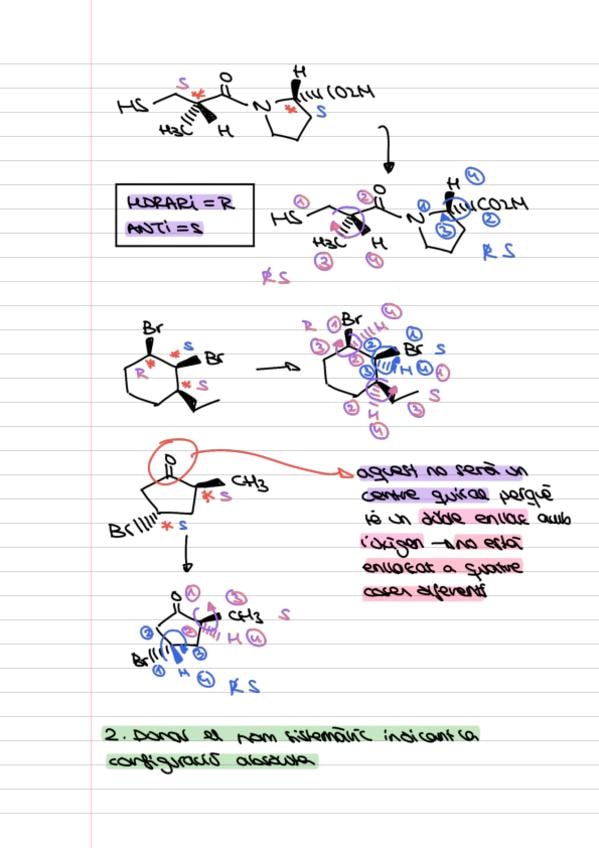 S * O H
HS N * CO2H
H3C H S
HORARI = R
ANTI = S
① ② O ① H ④
HS N CO2H
H3C H ③ ②
③ ④
R S
R S
Br
* S
R * Br
* S
R ① Br H ④
③ ② ② ① Br S
① H ④ ①
S
② H ③
④
O
CH3
* S
Br * S
aquest no serà un
centre quiral perquè
té un doble enllaç amb
l'oxigen → no està
enllaçat a quatre
coses diferents
O ① ③
CH3 S
② ② H ④
Br ③
① H ④ R S
2. Donar el nom sistemàtic indicant la
configuració absoluta